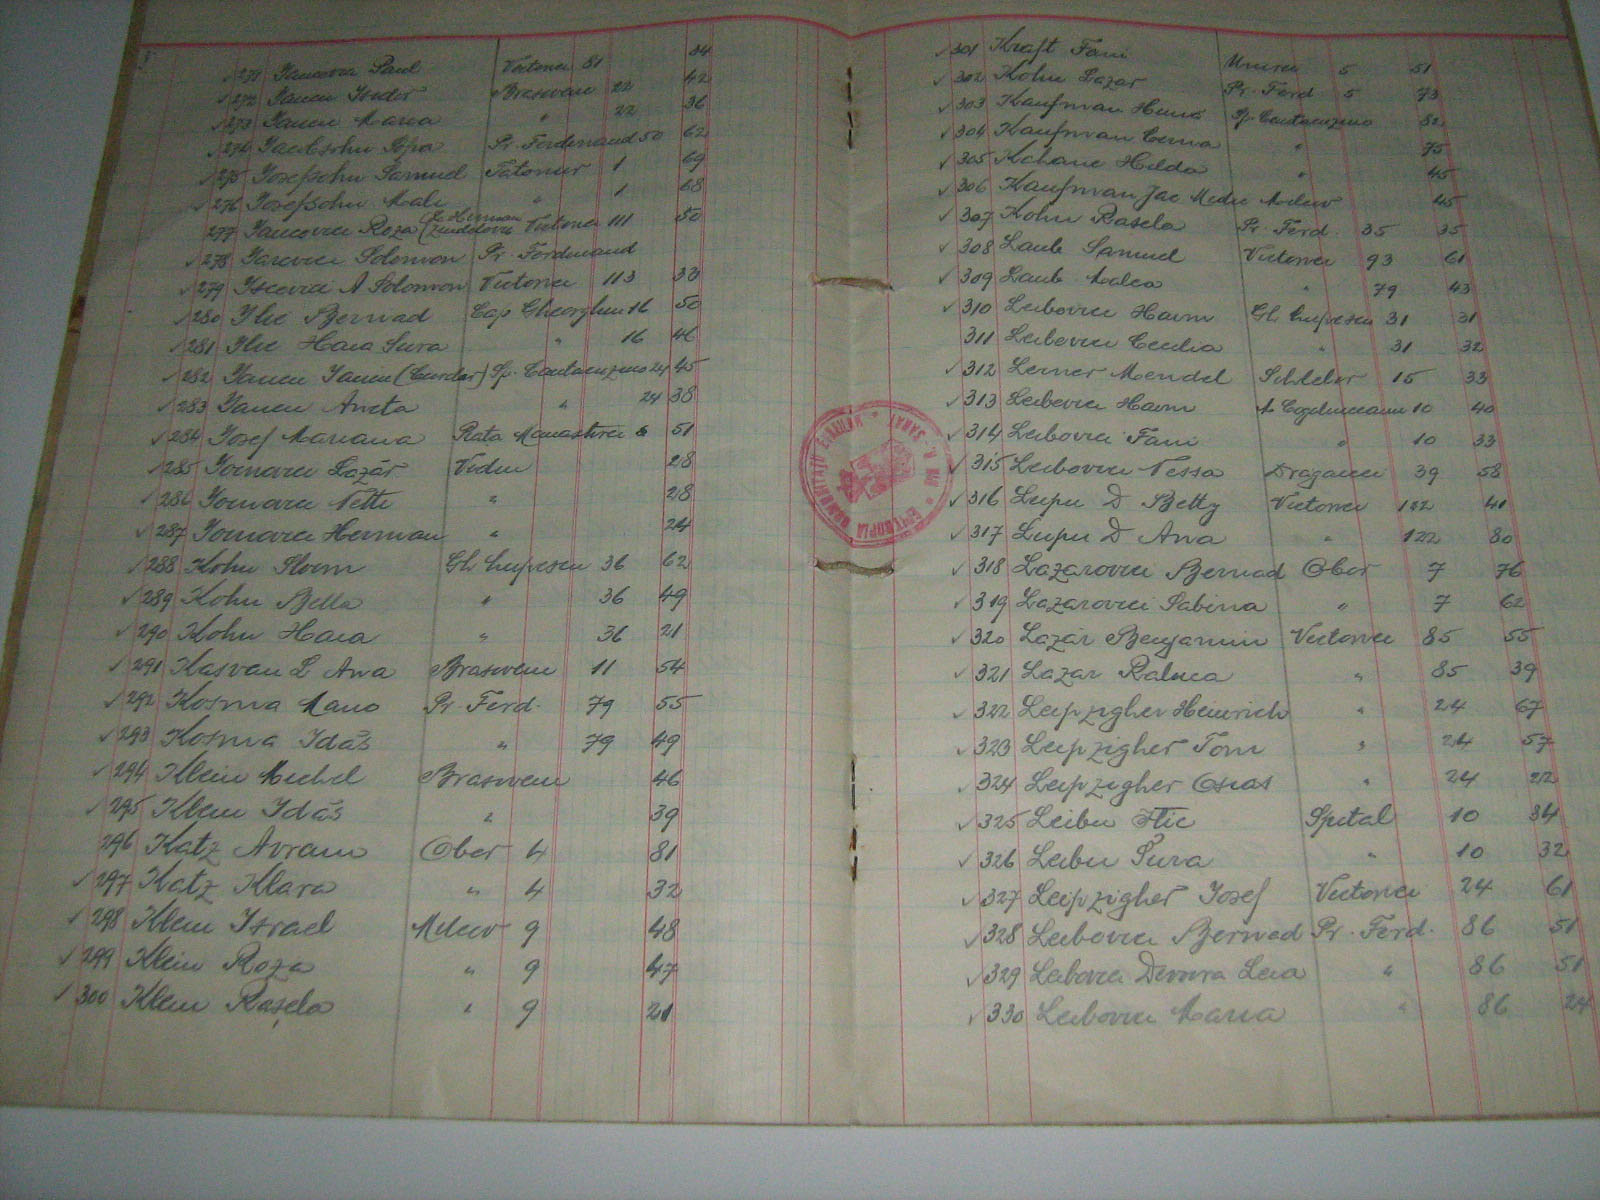 271 Iancovici Paul Victoriei 81 34
272 Iancu Isidor Brasoveni 22 42
273 Iancu Maria " 22 36
274 Iacobsohn Pr. Ferdinand 50 62
275 Iosefsohn Samuel Tatomir 1 69
276 Iosefsohn Mali " 1 68
277 Iancovici Roza (Herman Zundelovici Victoriei 111 50
278 Solomon Pr. Ferdinand
279 A Solomon Victoriei 113 38
280 Ilie Bernad Cap Gheorghiu 16 50
281 Ilie Haia Sura " 16 46
282 Iancu Iancu Sf. Cantacuzino 24 45
283 Iancu Aneta " 24 38
284 Iosef Mariana Piata Manastirei 51
285 Lazăr Vidin 28
286 Netti " 28
287 Herman " 24
288 Kohn Sloim Gh Lupescu 36 62
289 Kohn Bella " 36 49
290 Kohn Haia " 36 21
291 L Ana Brasoveni 11 54
292 Kosma Mano Pr. Ferd. 79 55
293 Kosma Ida " 79 49
294 Klein Michel Brasoveni 46
295 Klein Ida " 39
296 Katz Avram Obor 4 81
297 Katz Klara " 4 32
298 Klein Israel Milcov 9 48
299 Klein Roza " 9 47
300 Klein Rașela " 9 21
301 Kraft Fani Unirei 5 51
302 Kohn Lazar Pr. Ferd 5 73
303 Kaufman Sf. Cantacuzino 82
304 Kaufman " 75
305 Kahane Hilda " 45
306 Kaufman Jac Milcov 45
307 Kohn Rasela Pr. Ferd. 35 35
308 Laub Samuel Victoriei 93 61
309 Laub Malca " 79 43
310 Leibovici Haim Gh Lupescu 31 31
311 Leibovici Cecilia " 31 32
312 Lerner Mendel 15 33
313 Leibovici Haim M Cogalniceanu 10 40
314 Leibovici Fani " 10 33
315 Leibovici Nessa Dragaica 39 58
316 Lupu D Betty Victoriei 122 41
317 Lupu D Ana " 122 80
318 Lazarovici Bernad Obor 7 76
319 Lazarovici Sabina " 7 62
320 Lazăr Benjamin Victoriei 85 55
321 Lazar Raluca " 85 39
322 Leipzigher Heinrich " 24 67
323 Leipzigher Toni " 24 57
324 Leipzigher Osias " 24 22
325 Leibu Ilie Spital 10 34
326 Leibu Sura " 10 32
327 Leipzigher Iosef Victoriei 24 61
328 Leibovici Bernad Pr. Ferd. 86 51
329 Leibovici Devora Leia " 86 51
330 Leibovici Maria " 86 24